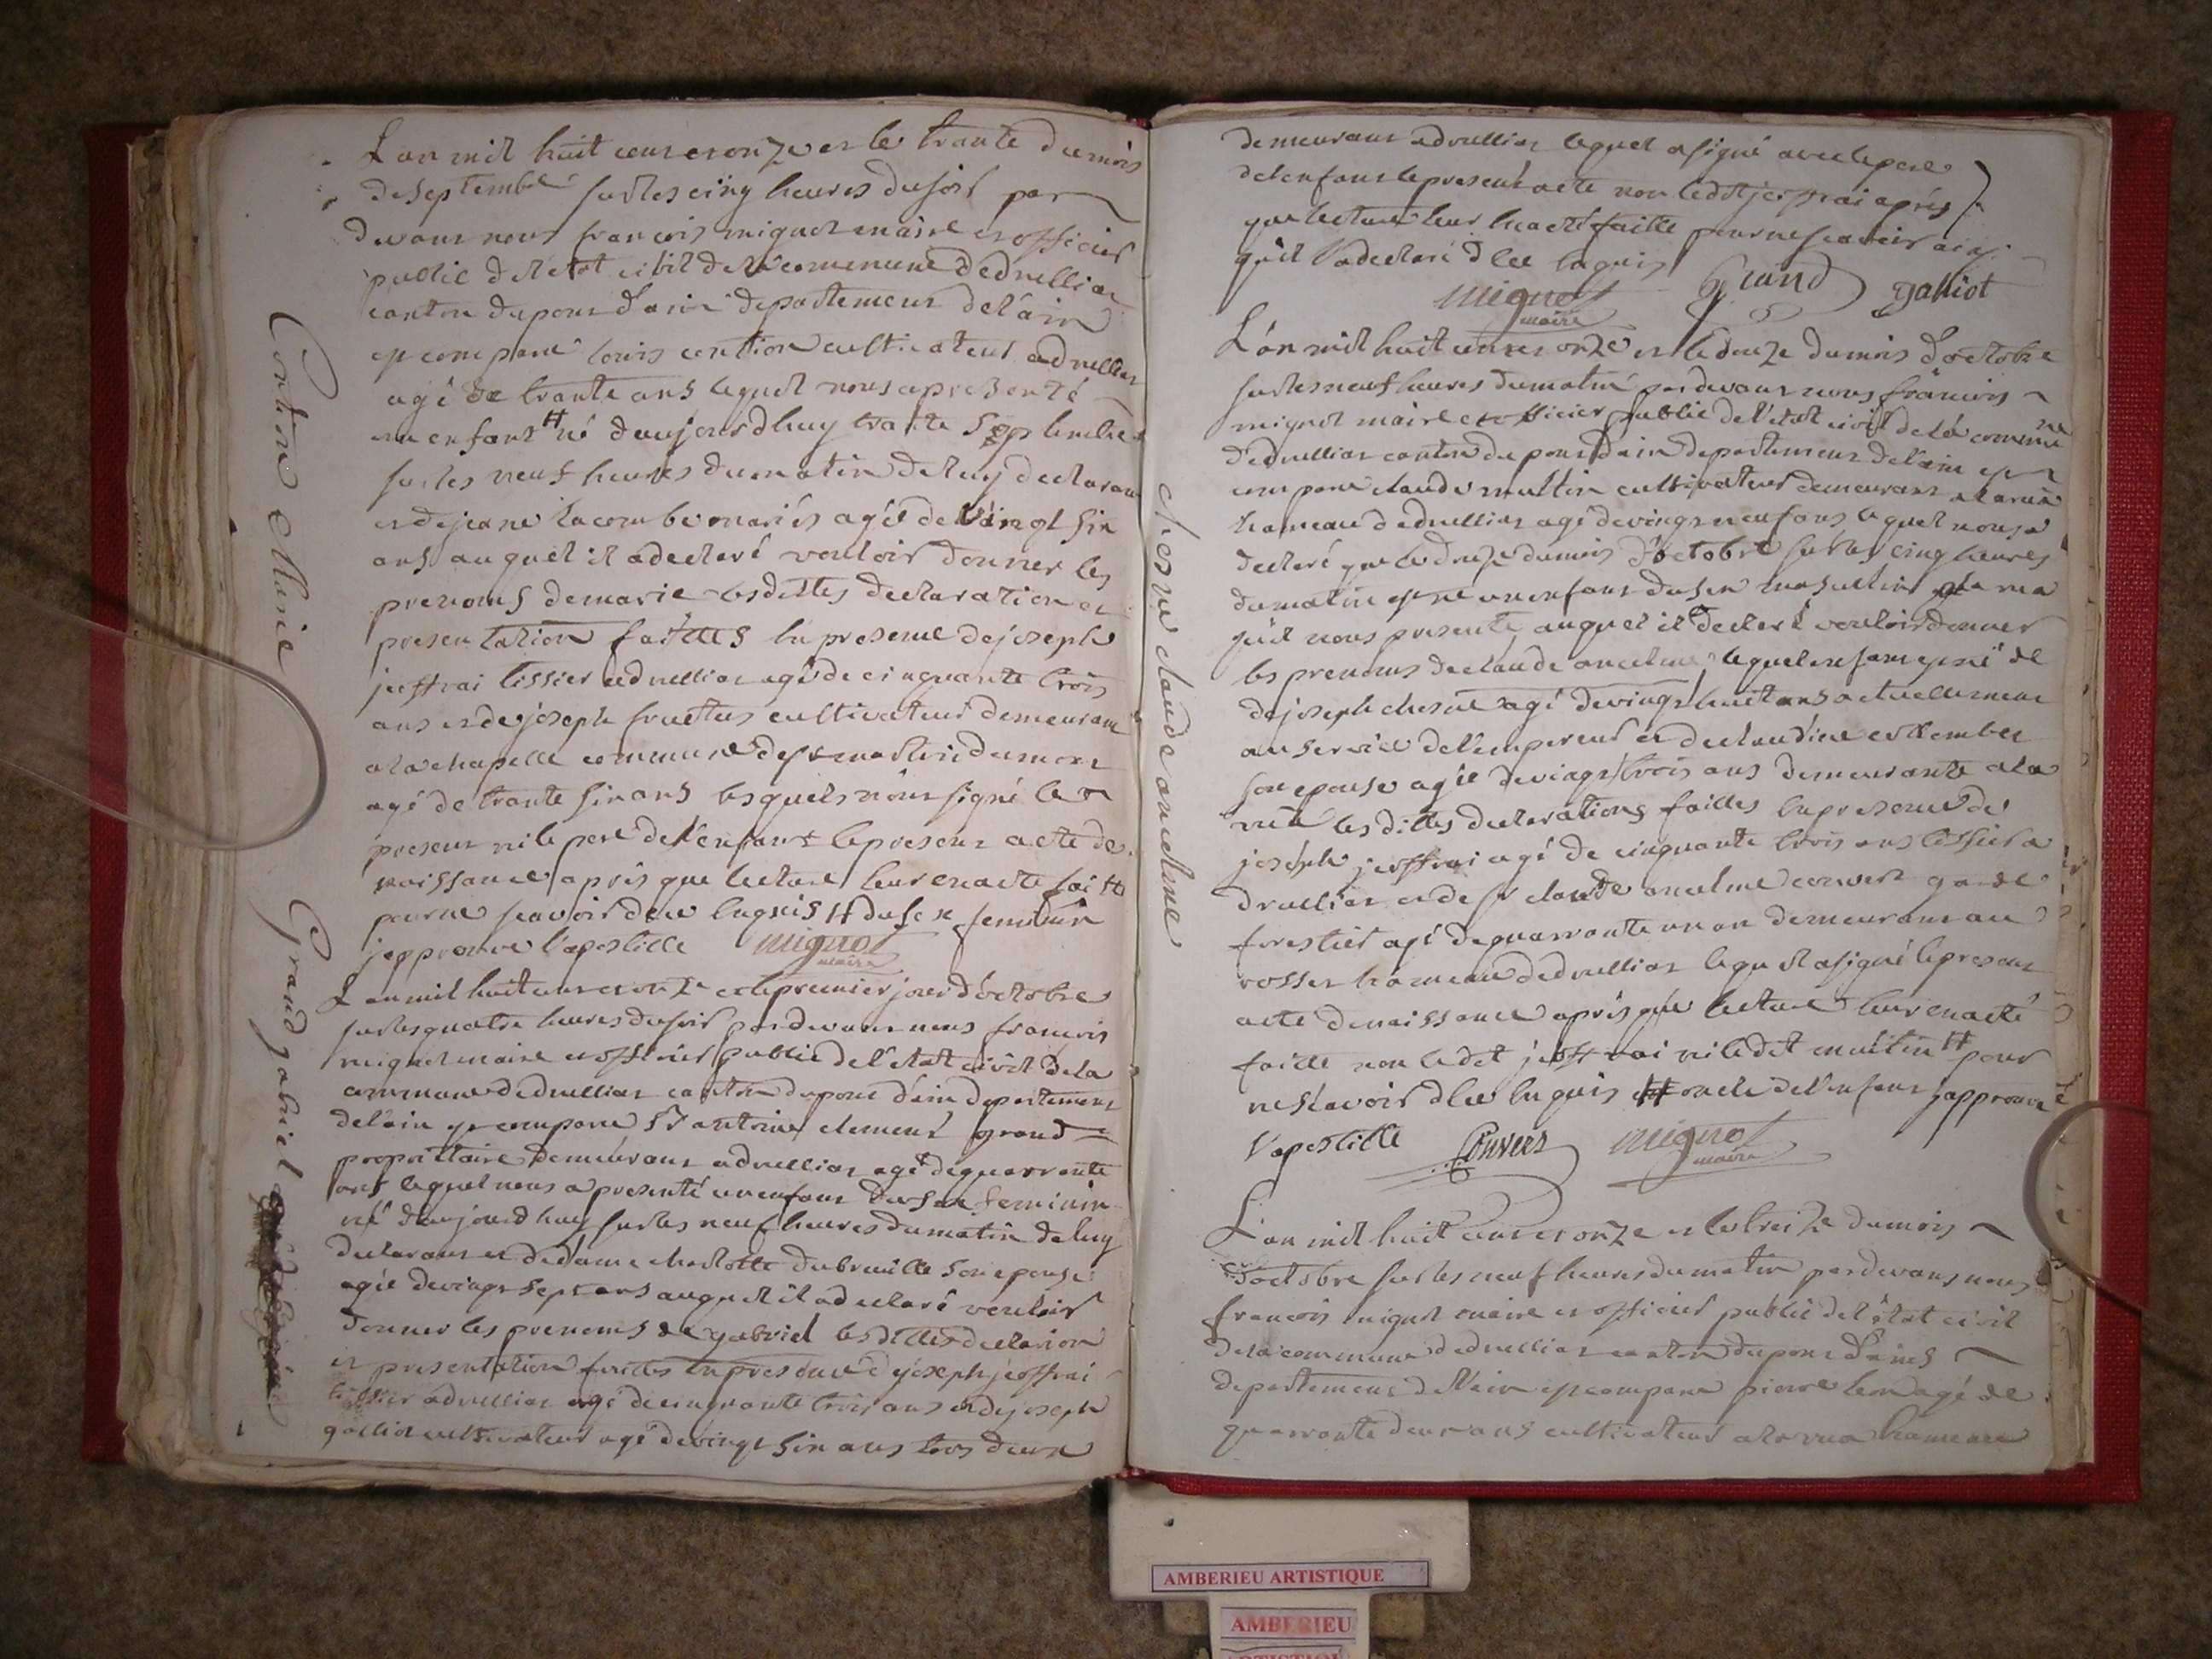 L'an mil huit cent et onze et le trante du mois
de Septembre sur les cinq heures du soir par
devant nous francois mignot maire et officier
public de l'etat civil de la commune dedruillias
canton du pont d'ain departement de l'ain
est comparu louis contion cultivateur a druillias
agé de trante ans lequel nous a presenté
un enfant # né d'aujourdhuy trante Septembre
sur les neuf heures du matin de luy declarant
et de jeane lacombe mariés agée de vaingt six
ans auquel il a declaré vouloir donner les
prenoms de marie lesdittes declaration et
presentation faittes en presence de joseph
jeoffrai tissier a druillias agé de cinquante trois
ans et de joseph fructus cultivateur demeurant
a la chapelle commune de st martin du mont
agé de trante six ans lesquels n'ont signé le
present ni le pere de l'enfant le present acte de
naissance apres que lecture leur en a eté faitte
pour ne scavoir de ce enquis # du sexe feminin
japprouve l'apostille mignot
maire
L'an mil huit cent et onze et le premier jour d'octobre
sur les quatre heures du soir par devant nous francois
mignot maire et officier public de l'etat civil de la
commune dedruillias canton du pont d'ain departement
de l'ain est comparu Sr antoine clement grand
propriétaire demeurant a druillias agé de quarrante
ans lequel nous a presenté un enfant du sexe feminin
né d'aujourdhuy sur les neuf heures du matin de luy
declarant et de dame charlotte dubreuille son epouse
agée de vingt sept ans auquel il a declaré vouloir
donner les prenoms de gabriel lesdittes declarion
et presentation faittes en presence de joseph jeoffrai
tissier a druillias agé de cinquante trois ans et de joseph
galliot cultivateur agé de vingt six ans tous deux
Contion Marie
Grand gabriel
demeurant a druillias lequel a signé avec le pere
de l'enfant le present acte non ledt jeoffrai après
que lecture leur en a eté faitte pour ne scavoir ainsi
qu'il l'a declaré d ce enquis
mignot maire Grand galliot
L'an mil huit cent et onze et le douze du mois d'octobre
sur les neuf heures du matin par devant nous francois
mignot maire et officier public de l'etat civil de la commune
dedruillias canton du pont d'ain departement de l'ain est
comparu claude multin cultivateur demeurant a la rua
hameau dedruillias agé de vingt neuf ans lequel nous a
declaré que le douze du mois d'octobre sur les cinq heures
du matin est né un enfant du sexe masculin a la rua
qu'il nous presente auquel il declaré vouloir donner
les prenoms de claude ancelme lequel enfant est né de
de joseph chesne agé de vingt huit ans actuellement
au service de l'empereur et de claudine
son epouse agée de vingt trois ans demeurante a la
rua les dittes declarations faittes en presence de
joseph jeoffrai agé de cinquante trois ans tissier a
druillias et de sr claude ancelme convert garde
forestier agé de quarrante un an demeurant au
rosset hameau dedruillias lequel a signé le present
acte de naissance après que lecture leur en a eté
faitte non ledt jeoffrai ni ledt multin # pour
ne scavoir d ce enquis # oncle de l'enfant japprouve
l'apostille Convert mignot
maire
chesne claude ancelme
L'an mil huit cent et onze et le treize du mois
d'octobre sur les neuf heures du matin par devant nous
francois mignot maire et officier public de l'etat civil
de la commune dedruillias canton du pont d'ain
departement de l'ain est comparu pierre leon agé de
quarrante deux ans cultivateur a la rua hameau
AMBERIEU ARTISTIQUE
AMBERIEU
ARTISTIQUE